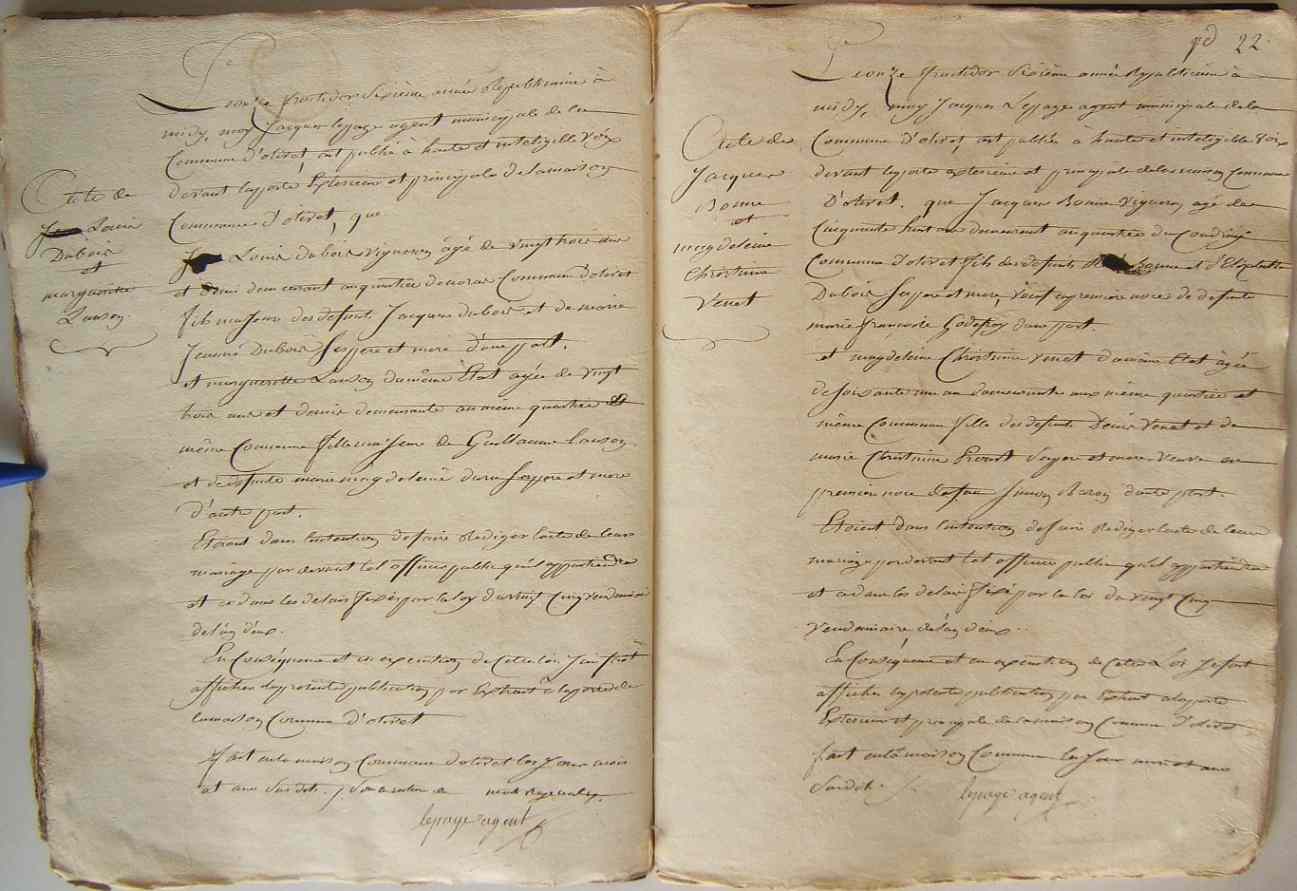 Le onze fructidor Sixième année Republicaine à
midy, moy Jacques lepage agent municipale de la
Commune D'olivet, ait publié à haute et inteligible Voix
devant laporte Exterieure et principale de lamaison
Commune d'olivet, que
Acte de
Louis
Dubois
et
marguerite
Lanson
Louis dubois vigneron agé de vingt trois ans
et demi demeurant au quartier de Commune dolivet
fils majeur des defunts Jacques dubois et de marie
Jeanne Dubois Ses pere et mere d'une part.
et marguerite Lanson du même Etat agée de vingt
trois ans et demie demeurante au même quartier et
même Commune fille majeure de Guillaume lanson
et de defunte marie magdeleine Ses pere et mere
d'autre part.
Etoient dans lintention de faire Rediger lacte de leur
mariage par devant tel officier public qu'il appartiendra
et ce dans les delais fixés par la loy du vingt Cinq vendemiaire
de lan deux.
En Conséquence et en execution de Cette loi J'ai fait
afficher la presente publication par Extrait à la porte de
lamaison Commune d'olivet
fait en la maison Commune dolivet les Jour mois
et ans Susdit.
lepage agent
22
Le onze fructidor Sixième année Republicaine à
midy, moy Jacques Lepage agent municipale de la
Commune D'olivet, ait publiée à haute et inteligible Voix
devant laporte exterieure et principale de la maison Commune
D'olivet. que Jacques Bonne Vigneron agé de
Acte de
Jacques
Bonne
et
magdeleine
Christinne
Venet
Cinquante huit ans demeurant au quartier du Coudray
Commune d'olivet fils des defunts Bonne et d'Elizabeth
Dubois Ses pere et mere, Veuf en premiere noce de defunte
marie françoise Godefroy d'une part.
et magdeleine Christinne Venet du même Etat agée
de soixante un an demeurante aux même quartier et
même Commune fille des defunts Denis Venet et de
marie Christinne Ses pere et mere Veuve en
premiere noce defeu Simon d'autre part.
Etoient dans l'intention de faire Rediger lacte de leur
mariage par devant tel officier public qu'il appartiendra
et ce dans les delais fixé par la loi du vingt Cinq
Vendemiaire de lan deux.
En Conséquence et en execution de Cette Loi Je fait
afficher la presente publication par extrait à laporte
Exterieure et principale de la maison Commune d'olivet
fait en la maison Commune les Jour mois et ans
Susdit.
lepage agent